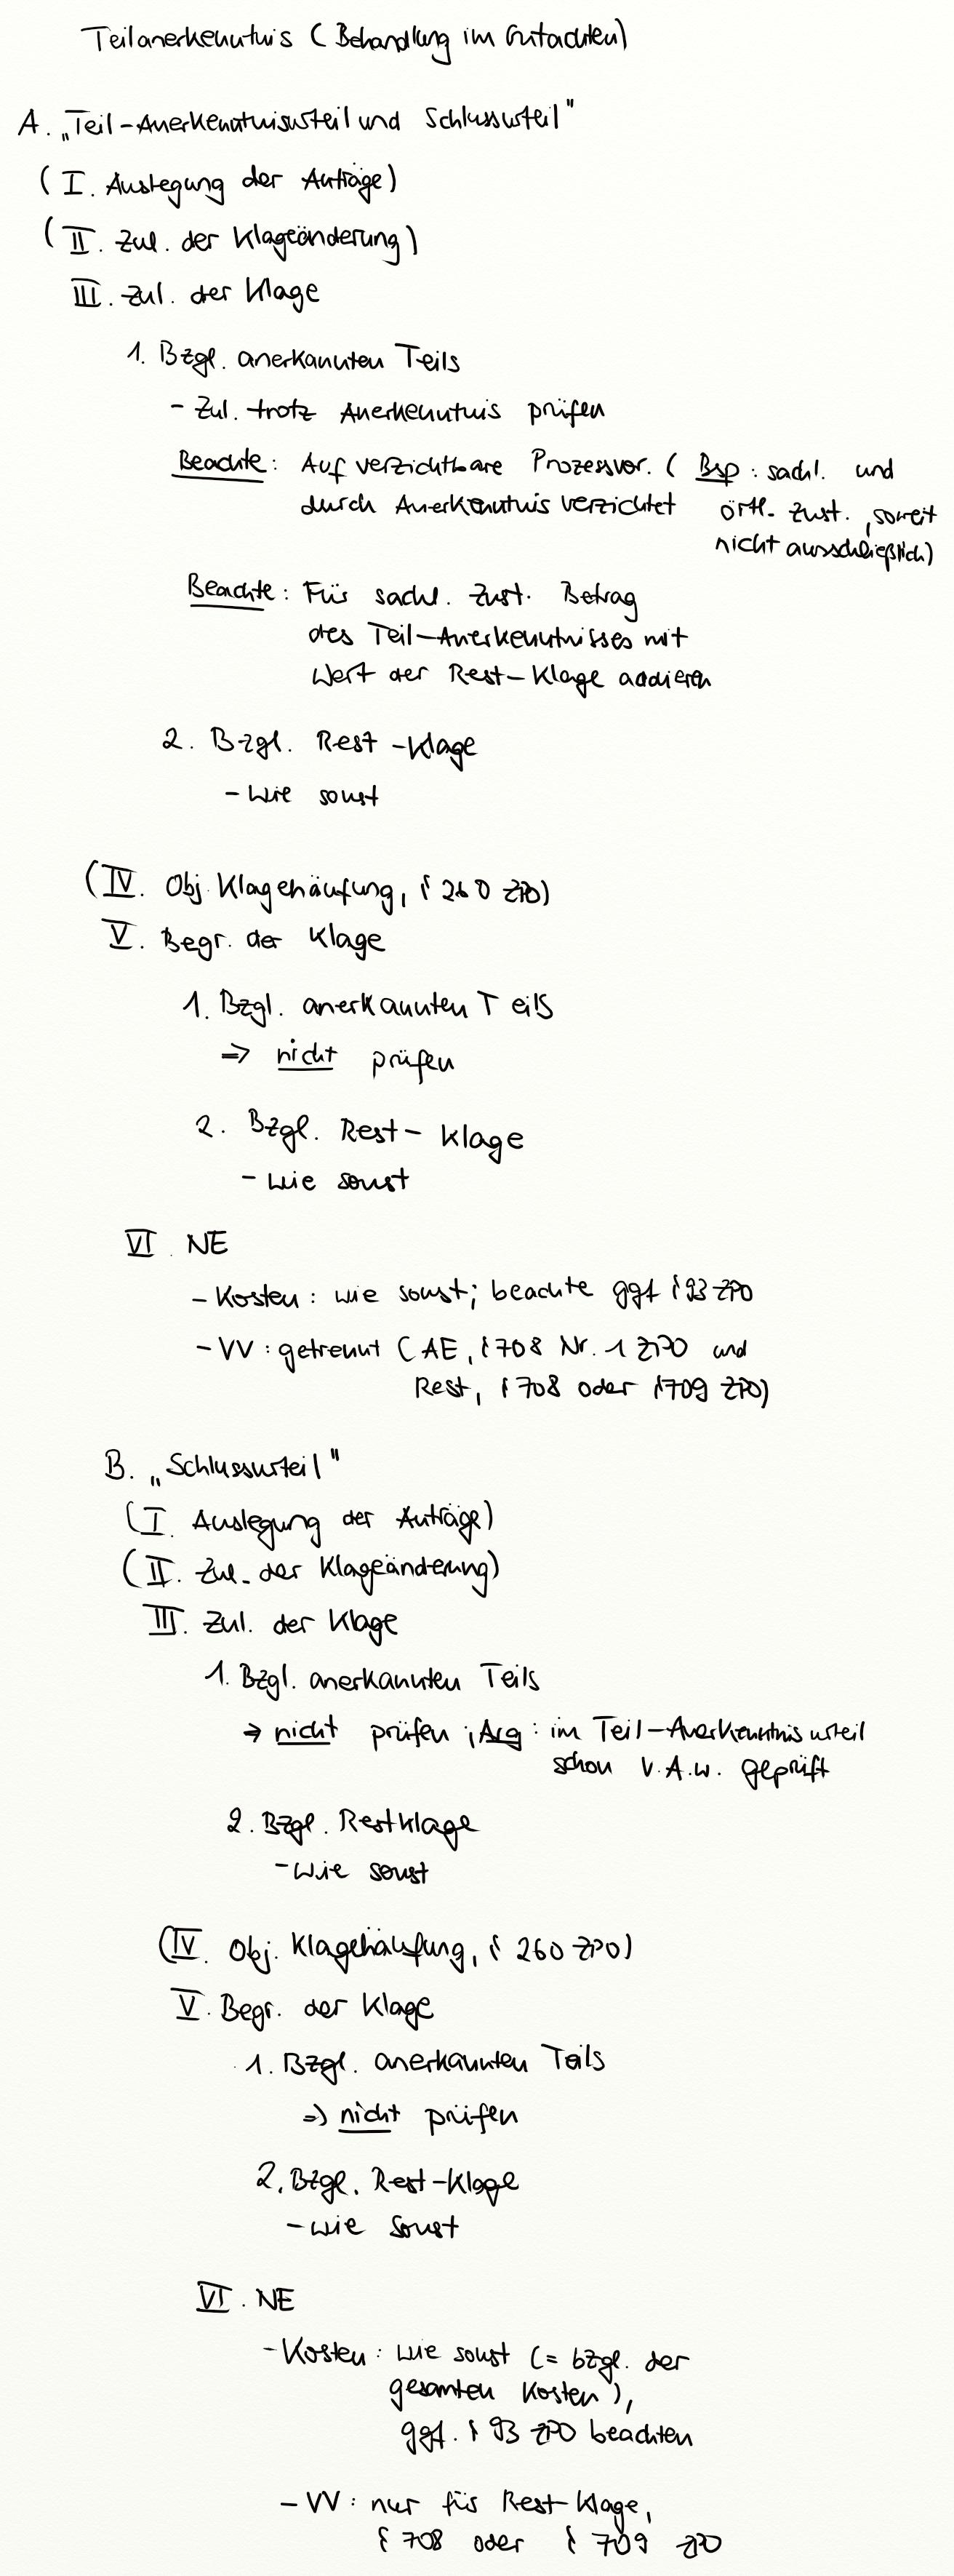 Teilanerkenntnis (Behandlung im Gutachten)
A. „Teil-Anerkenntnisurteil und Schlussurteil"
(I. Auslegung der Anträge)
(II. Zul. der Klageänderung)
III. Zul. der Klage
1. Bzgl. anerkannten Teils
- Zul. trotz Anerkenntnis prüfen
Beachte: Auf verzichtbare Prozessvor. (Bsp: sachl. und
durch Anerkenntnis verzichtet örtl. Zust., soweit
nicht ausschließlich)
Beachte: Für sachl. Zust. Betrag
des Teil-Anerkenntnisses mit
Wert der Rest-Klage addieren
2. Bzgl. Rest-Klage
- wie sonst
(IV. Obj. Klagehäufung, § 260 ZPO)
V. Begr. der Klage
1. Bzgl. anerkannten Teils
⇒ nicht prüfen
2. Bzgl. Rest-Klage
- wie sonst
VI. NE
- Kosten: wie sonst; beachte ggf § 93 ZPO
- VV: getrennt (AE, § 708 Nr. 1 ZPO und
Rest, § 708 oder § 709 ZPO)
B. „Schlussurteil"
(I. Auslegung der Anträge)
(II. Zul. der Klageänderung)
III. Zul. der Klage
1. Bzgl. anerkannten Teils
⇒ nicht prüfen; Arg: im Teil-Anerkenntnisurteil
schon v.A.w. geprüft
2. Bzgl. Restklage
- wie sonst
(IV. Obj. Klagehäufung, § 260 ZPO)
V. Begr. der Klage
1. Bzgl. anerkannten Teils
⇒ nicht prüfen
2. Bzgl. Rest-Klage
- wie sonst
VI. NE
- Kosten: wie sonst (= bzgl. der
gesamten Kosten),
ggf. § 93 ZPO beachten
- VV: nur für Rest-Klage,
§ 708 oder § 709 ZPO